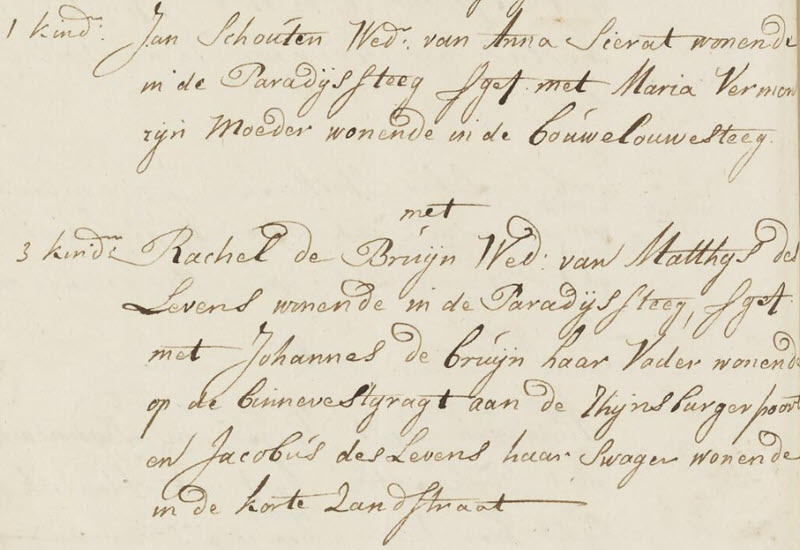 1 kind: Jan Schouten Wed: van Anna Sierat wonende
in de Paradijssteeg Sget. met Maria Vermon
zijn Moeder wonende in de bouwelouwesteeg.
met
3 kindn Rachel de Bruijn Wed: van Matthijs des
Levens wonende in de Paradijssteeg, Sget.
met Johannes de bruijn haar Vader wonende
op de binnevestgragt aan de Rhijnsburger poort
en Jacobus des Levens haar Swager wonende
in de korte Zandstraat